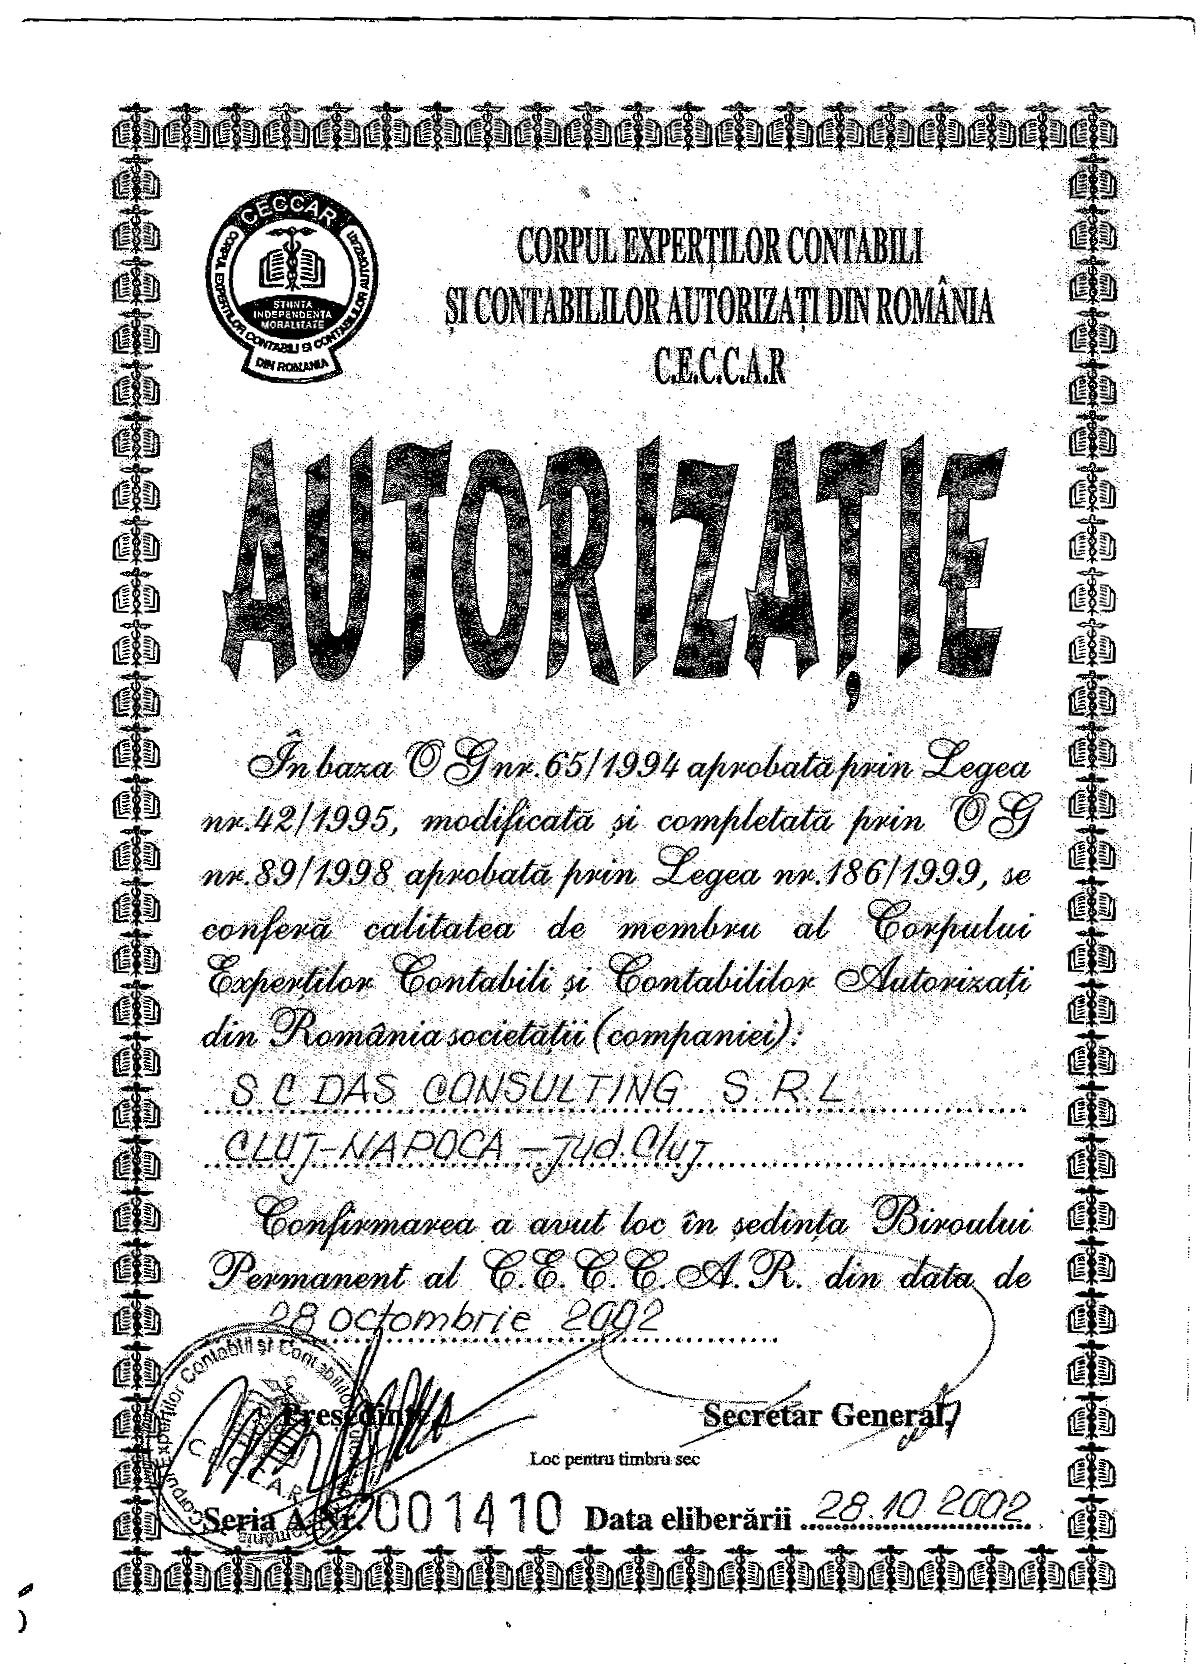 CECCAR
CORPUL EXPERTILOR CONTABILI SI CONTABILILOR AUTORIZATI
STIINTA
INDEPENDENTA
MORALITATE
DIN ROMANIA
CORPUL EXPERȚILOR CONTABILI
ȘI CONTABILILOR AUTORIZAȚI DIN ROMÂNIA
C.E.C.C.A.R
AUTORIZAȚIE
În baza OG nr.65/1994 aprobată prin Legea
nr.42/1995, modificată și completată prin OG
nr.89/1998 aprobată prin Legea nr.186/1999, se
conferă calitatea de membru al Corpului
Experților Contabili și Contabililor Autorizați
din România societății (companiei):
S C DAS CONSULTING S.R.L
CLUJ-NAPOCA - jud. Cluj
Confirmarea a avut loc în ședința Biroului
Permanent al C.E.C.C.A.R. din data de
28 octombrie 2002
Președinte,
Secretar General,
Loc pentru timbru sec
C.E.C.C.A.R.
Seria A Nr. 001410 Data eliberării 28.10.2002